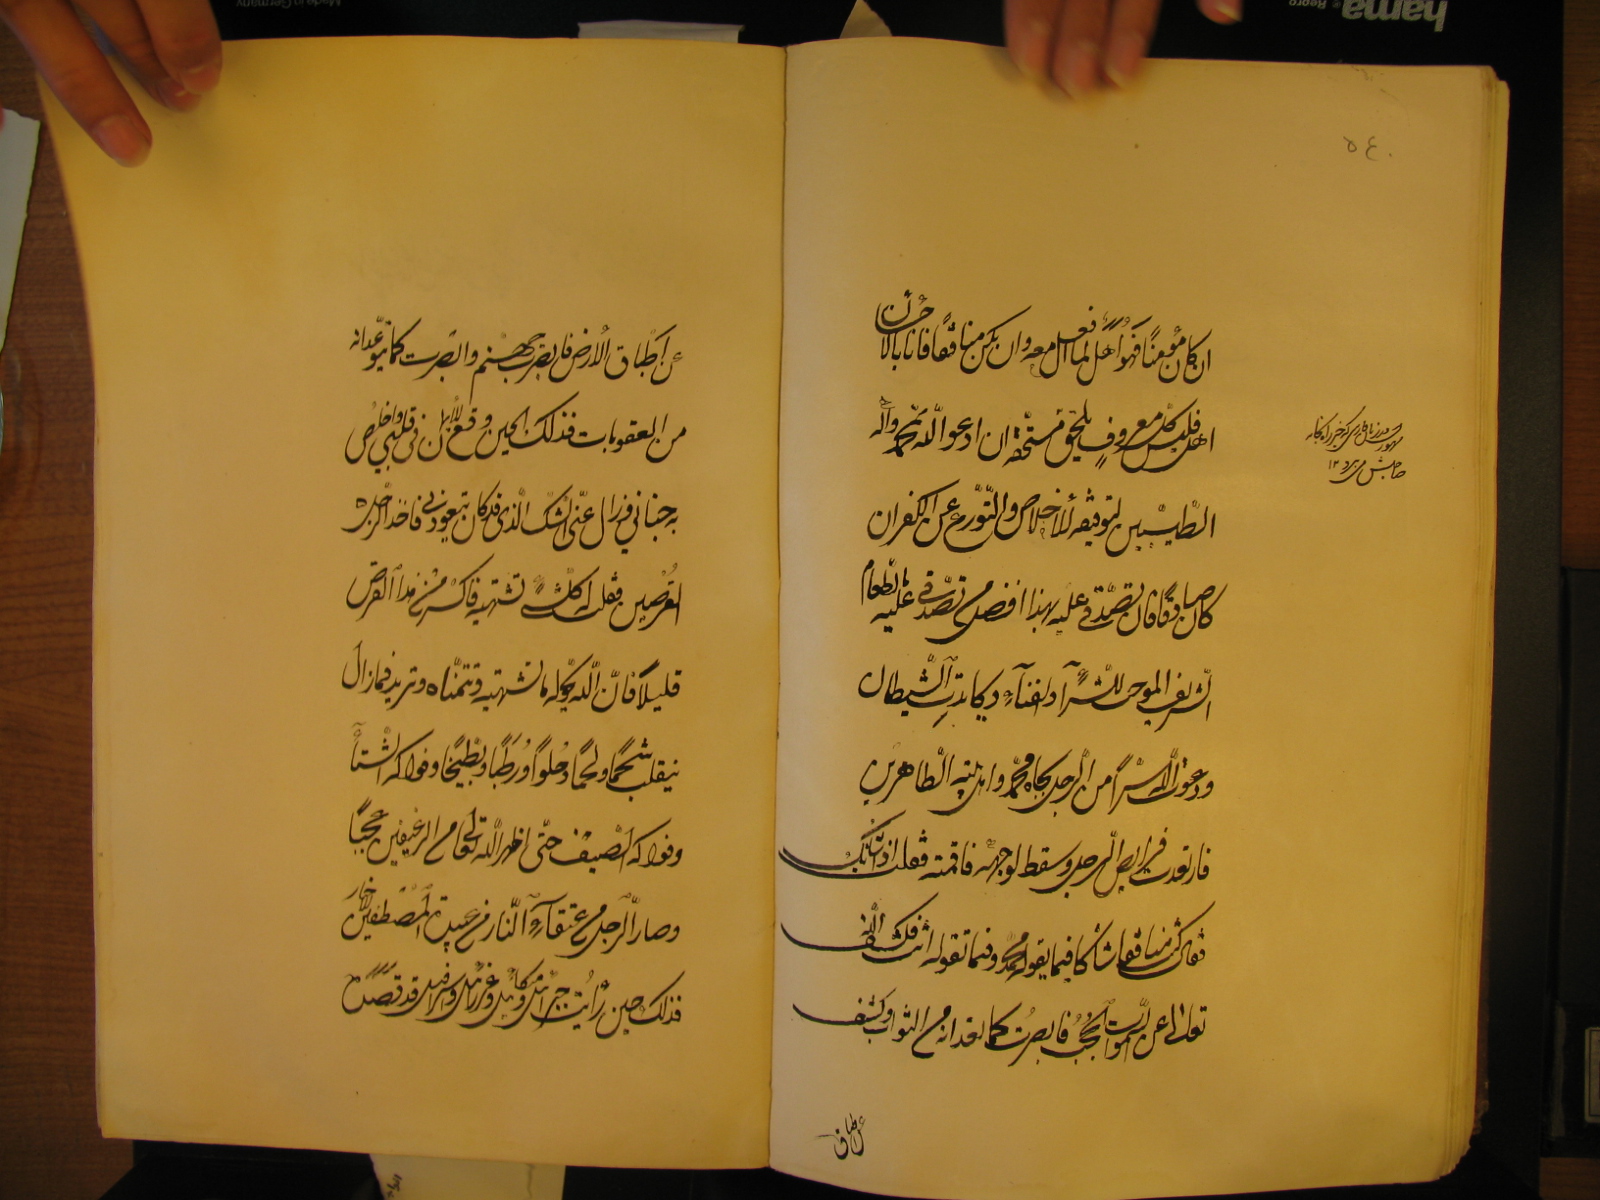 ان كان مؤمنا فهو اهل لما افعل معه وان يكن منافقا فانا بالاحسان
اهل فليس كل معروف يلحق مستحقه ان ادعو الله بمحمد وآله
الطيبين لتوفيقه للاخلاص والتورع عن الكفران
كان صادقا فان تصدقى عليه بهذا افضل من تصدقى عليه بالطعام
الشريف الموجب للثراء والغناء وكايدت الشيطان
ودعوت الله سرا من الرجل بجاه محمد واهل بيته الطاهرين
فارتعدت فرايص الرجل وسقط لوجهه فاقمته فقلت
فقال كنت منافقا شاكا فيما يقوله محمد وفيما تقوله انت فكشف الله
تعالى عن السموات والحجب فابصرت كلما تعدانه من الثواب وكشف
عن اطباق
عن اطباق الارض فابصرت جهنم وابصرت كلما تتوعدانه
من العقوبات فذلك الحين وقع الايمان فى قلبى واخلص
به جنانى فزال عنى الشك الذى قد كان يتعودنى فاخذ الرجل
القرصين فقلت له كل شئ تشتهيه فاكسر من هذا القرص
قليلا فان الله يحوله ما تشتهيه وتتمناه وتريد فمازال
ينقلب شحما ولحما وحلوا ورطبا وبطيخا وفواكه الشتاء
وفواكه الصيف حتى اظهر الله تعالى من الرغيفين عجبا
وصار الرجل من عتقاء النار من عبيده المصطفين الاخيار
فذلك حين رايت جبرائيل وميكائيل وعزرائيل واسرافيل قد قصدوا